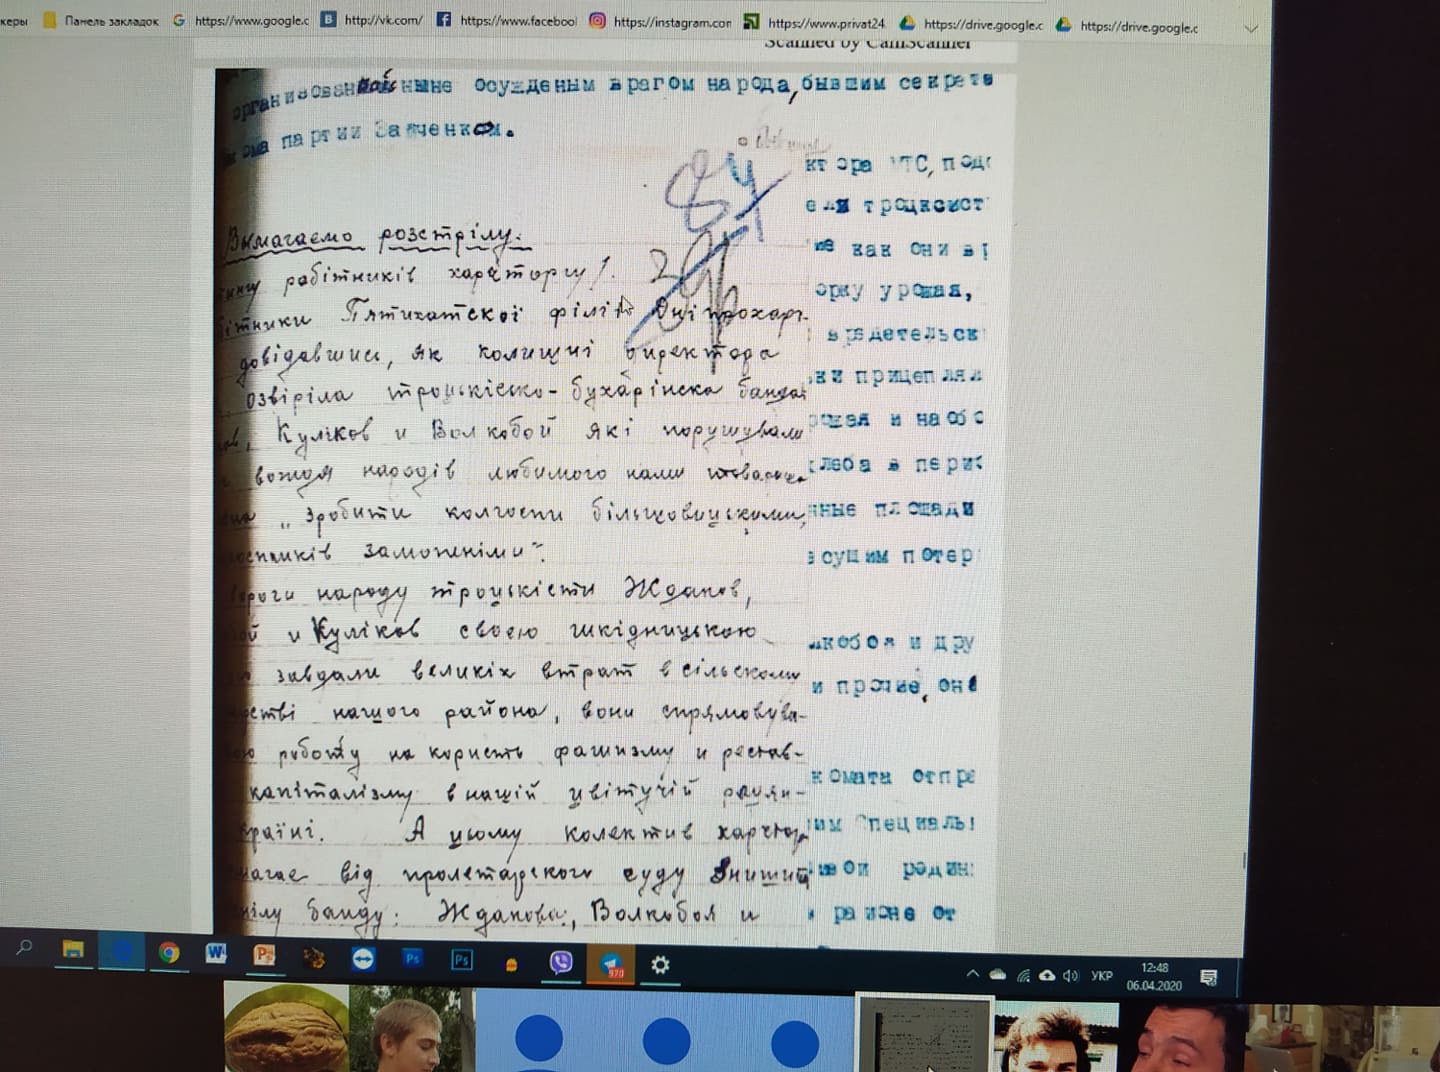 керы Панель закладок https://www.google.c http://vk.com/ https://www.facebool https://instagram.con https://www.privat24. https://drive.google.c https://drive.google.c
Scanned by CamScanner
ныне осужденым врагом народа, бывшим секрета
кома партии Зайченком.
84
Вымагаемо розстрілу.
робітників харчторгу/.
ітники Пятихатскої філії Дніпрохарч-
довідавшись, як колишні директора
озвіріла троцкіско-бухарінска банда:
Куліков и Волкобой які порушували
вождя народів любимого нами
„Зробити колгоспи більшовицькими,
заможніми".
вороги народу троцькісти Жданов,
и Куліков своею шкідницькою
завдали великіх втрат в сільскому
нашого района, вони спрямовува-
роботу на користь фашизму и рестав-
капіталізму в нашій цвітучій радян-
країні. А цьому колектив харчтор
магає від пролетарского суду знишит
банду: Жданова, Волкобоя и
ктора МТС, подс
еля троцкист
ие как они в р
орку урожая,
вредительск
ки прицеплял
рожая и на об с
хлеба в перис
нные площади
в сущим потер
лкобоя и дру
и прочие, она
комата отпра
им специаль
ивой родин
районе от
970
УКР
12:48
06.04.2020